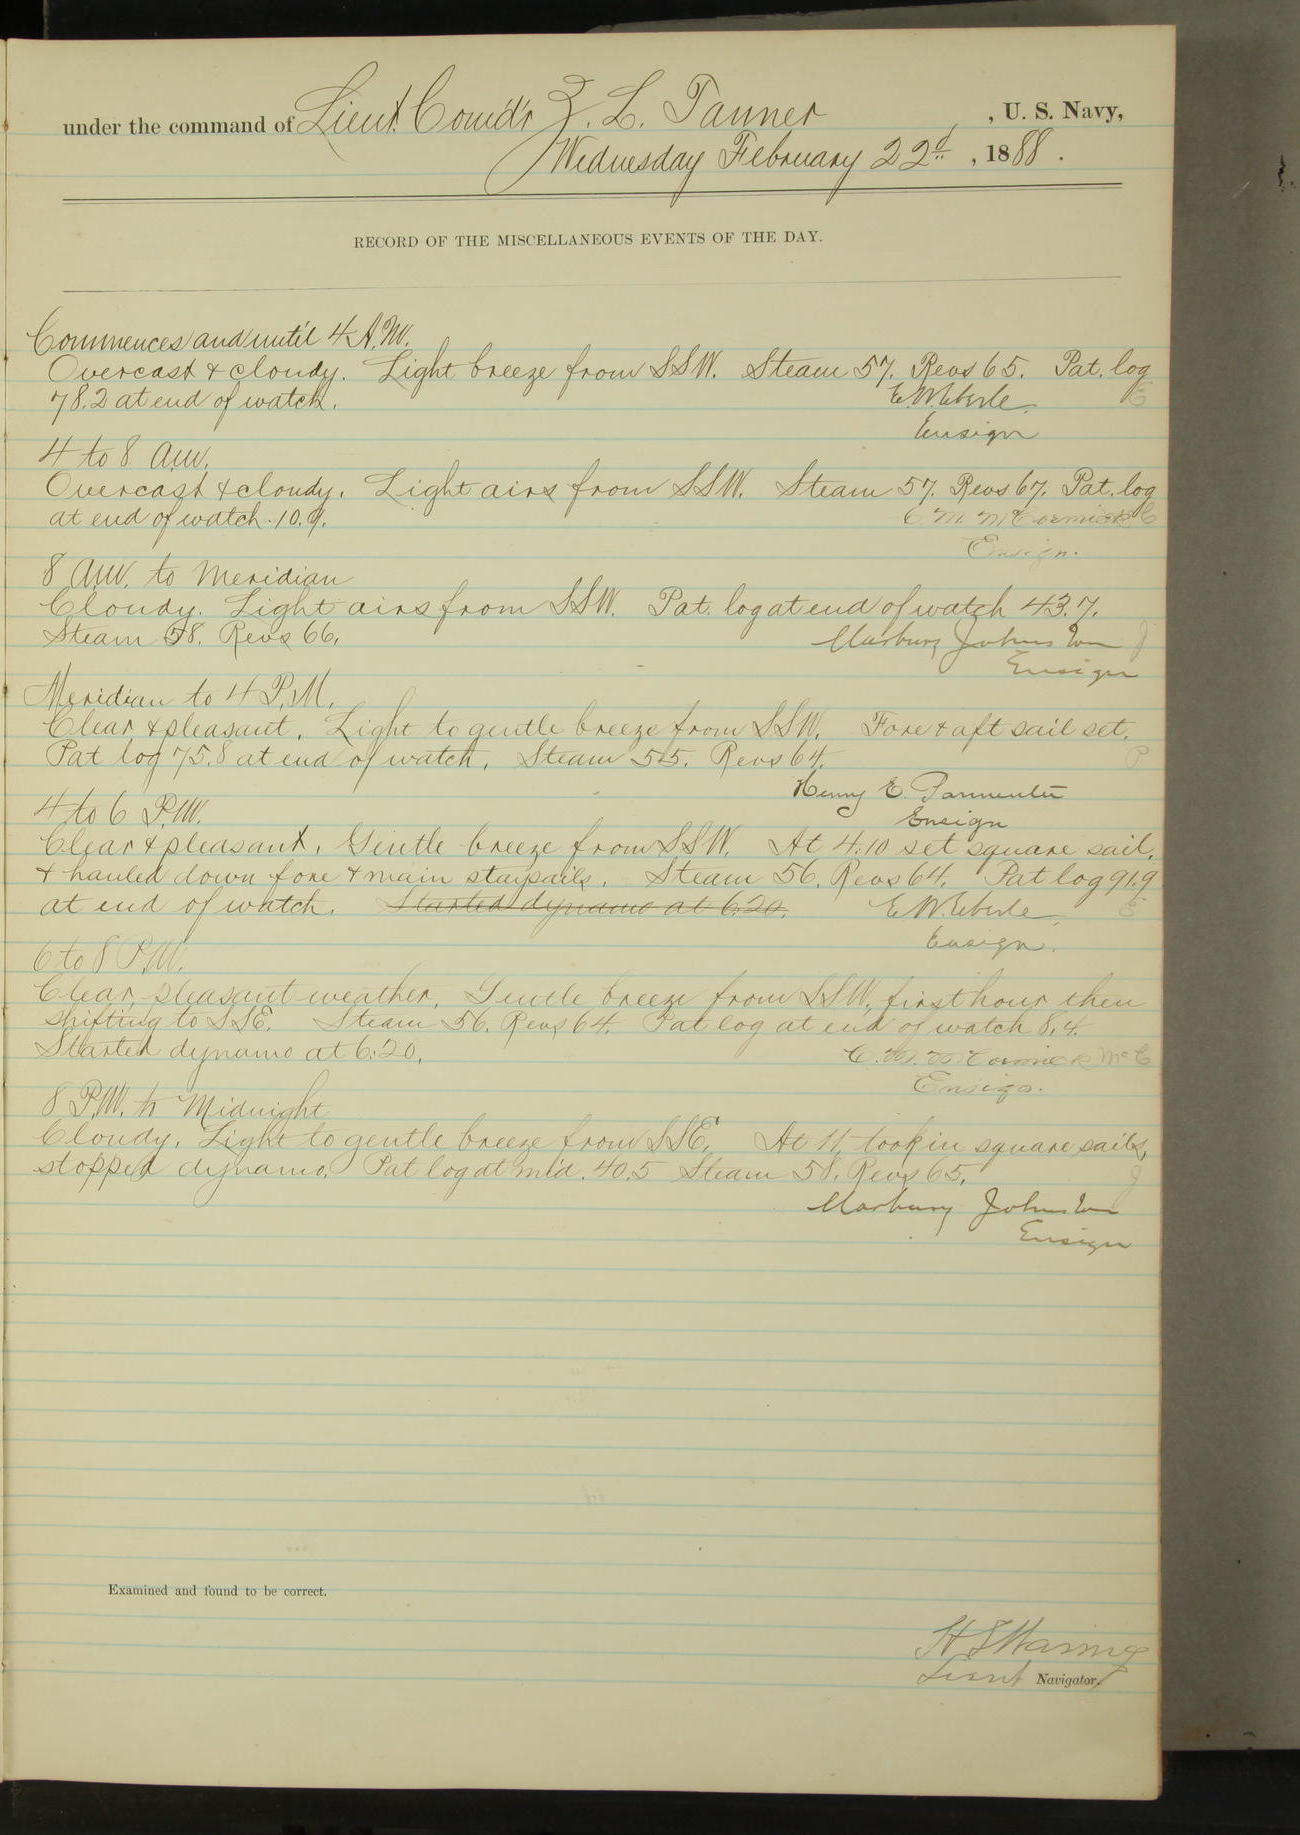 under the command of Lieut. Comd'r Z. L. Tanner, U. S. Navy,
Wednesday February 22d, 1888.
RECORD OF THE MISCELLANEOUS EVENTS OF THE DAY.
Commences and until 4 A.M.
Overcast & cloudy. Light breeze from SSW. Steam 57. Revs 65. Pat. log
78.2 at end of watch. E. W. Eberle E
Ensign
4 to 8 a.m.
Overcast & cloudy. Light airs from SSW. Steam 57. Revs 67. Pat. log
at end of watch 10.9. C. M. McCormick
Ensign.
8 a.m. to Meridian
Cloudy. Light airs from SSW. Pat. log at end of watch 43.7.
Steam 58. Revs 66. Marbury Johnston J
Ensign
Meridian to 4 P.M.
Clear & pleasant. Light to gentle breeze from SSW. Fore & aft sail set.
Pat log 75.8 at end of watch. Steam 55. Revs 64. P
Henry E. Parmenter
Ensign
4 to 6 P.M.
Clear & pleasant. Gentle breeze from SSW. At 4.10 set square sail,
& hauled down fore & main staysails. Steam 56. Revs 64. Pat log 91.9
at end of watch. Started dynamo at 6.20. E. W. Eberle E
Ensign.
6 to 8 P.M.
Clear, pleasant weather. Gentle breeze from SSW, first hour then
shifting to SSE. Steam 56. Revs 64. Pat log at end of watch 8.4.
Started dynamo at 6:20. C. M. McCormick McC
Ensign.
8 P.M. to Midnight
Cloudy. Light to gentle breeze from SSE. At 11, took in square sails,
stopped dynamo. Pat log at mid. 40.5 Steam 58. Revs 65. J
Marbury Johnston
Ensign
Examined and found to be correct.
H S Waring
Lieut Navigator.